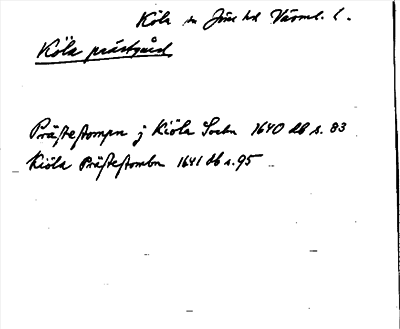 Köla sn Jöse hd Värml. l.
Köla prästgård
Prästestompn j Kiöla Sochn 1640 db s. 83
Kiöla Prästestombn 1641 db s. 95